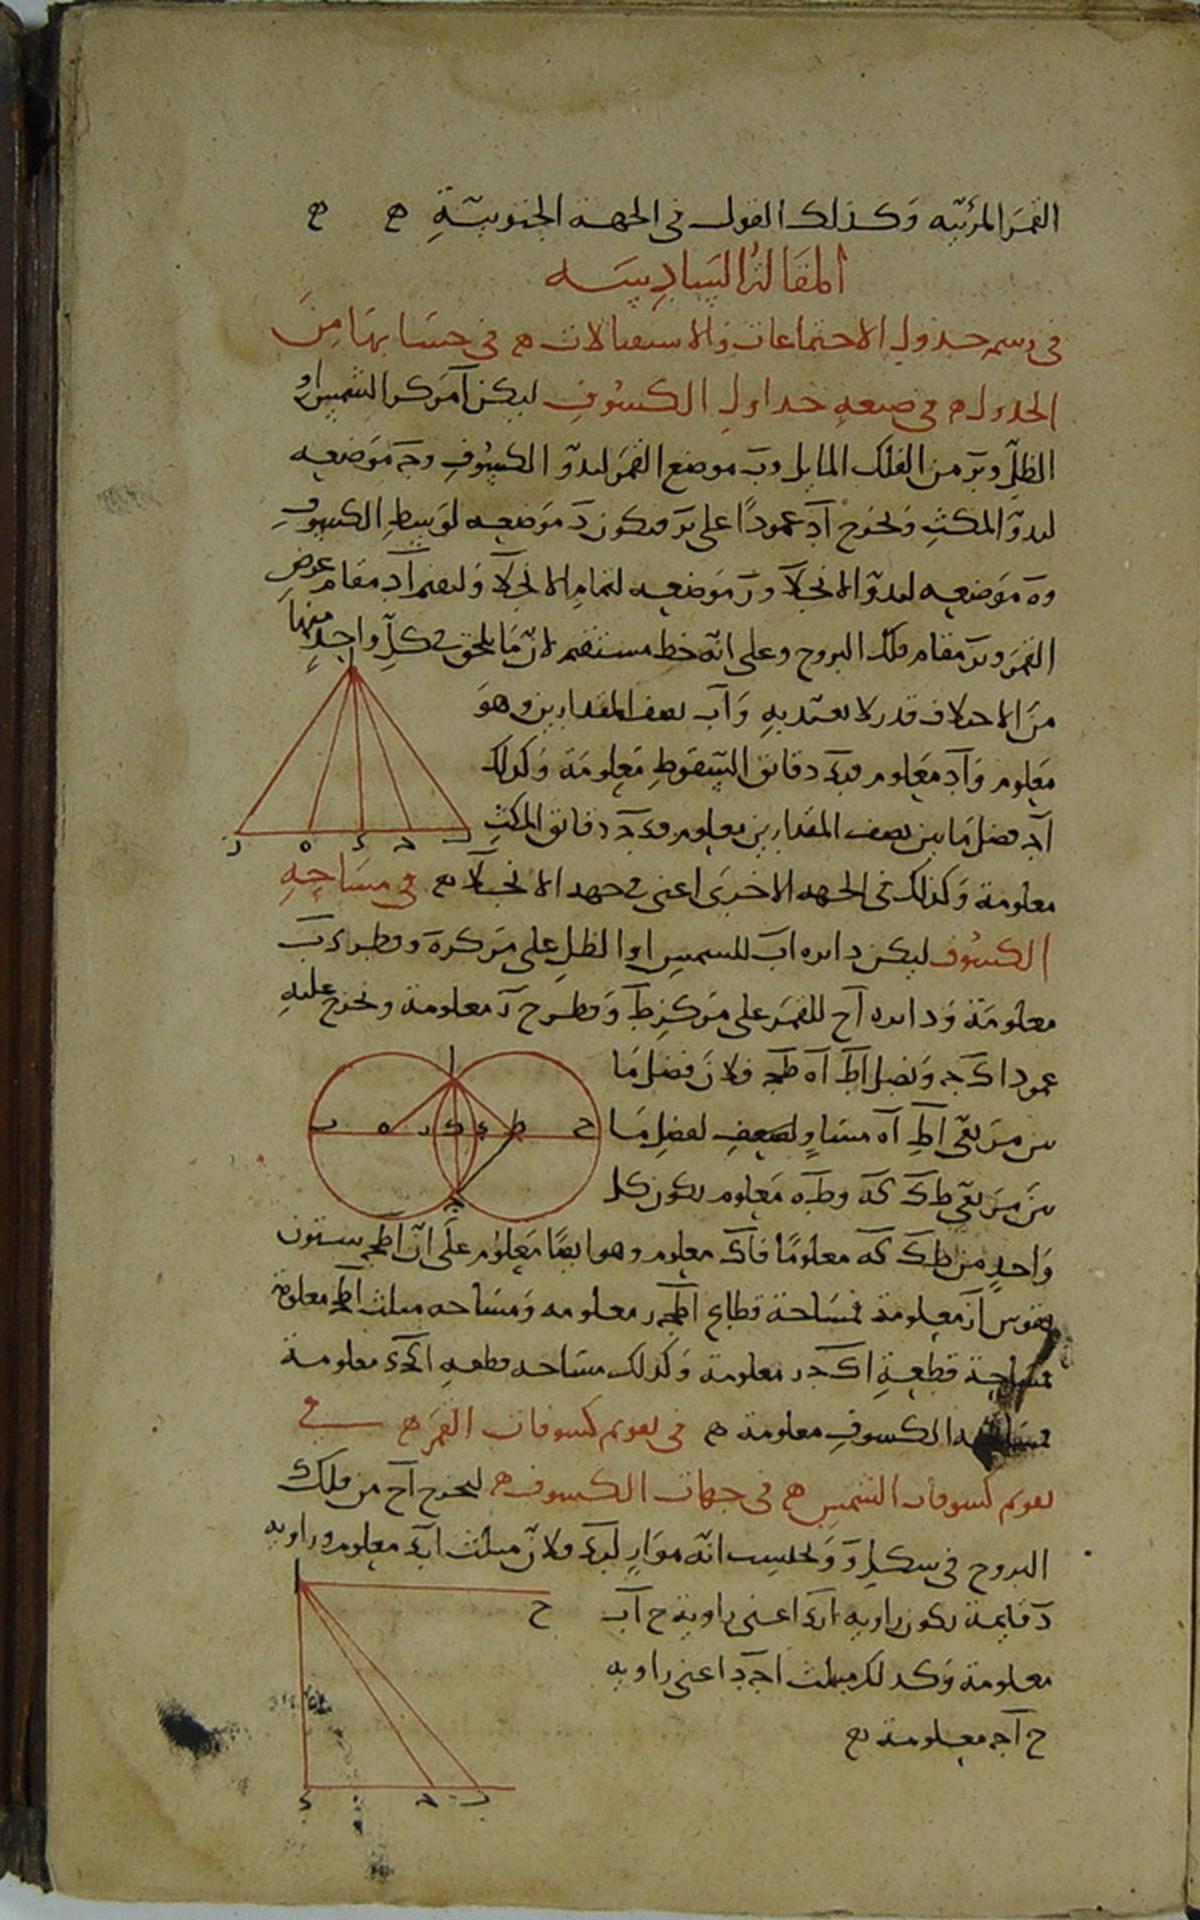 القمر المرئيه وكذلك القول في الجهة الجنوبية ھ ھ
المقالة السادسه
في رسم جدول الاجتماعات والاستقبالات ھ في حسابها من
الجدول ھ في صنعه جداول الكسوف ليكن آ مركز الشمس او
الظل وبز من الفلك المايل وب موضع القمر لبدو الكسوف وج موضعه
لبدو المكث ونخرج اد عمودا على بز فيكون د موضعه لوسط الكسوف
وه موضعه لبدو الانجلا وز موضعه لتمام الانجلا وليقم اد مقام عرض
القمر وبز مقام فلك البروج وعلى انه خط مستقيم لان ما يلحق في كل واحد منها
من الاختلاف قدر لا يعتد به واب نصف المقدارين وهو
معلوم واد معلوم فبد دقائق السقوط معلومة وكذلك
اج فضل ما بين نصف المقدارين معلوم فدج دقائق المكث
معلومة وكذلك في الجهه الاخرى اعنى في جهه الانجلا في مساحه
الكسوف ليكن دايره اب للشمس او الظل على مركز ه وقطر دب
معلومة ودايره اح للقمر على مركز ط وقطر ح ز معلومة ونخرج عليه
عمود اكج ونصل اط اه طج فلان فضل ما
بين مربعي اط اه مساو لفضل ما
بين مربعي طك كه وطه معلوم يكون كل
واحد من طك كه معلوما فاك معلوم وهو ايضا معلوم على ان اط ستون
فقوس از معلومة فمساحة قطاع اطجز معلومه ومساحه مثلث اطج معلومة
فمساحة قطعة اكجز معلومة وكذلك مساحه قطعه اكجد معلومة
الكسوف معلومة ھ في تقويم كسوفات القمر ھ في
تقويم كسوفات الشمس ھ في جهات الكسوف ھ ليخرج اح من فلك
البروج في شكل و انه مواز لبد ولان مثلث ابد معلوم وزاويه
د قايمة يكون زاويه ابد اعنى زاوية ح اب
معلومة وكذلك مثلث اجد اعنى زاويه
ح اج معلومة
ا
ز ه د ج ب
ا
ب ه ز ك د ط ح
ج
ا
ح
د ج ب